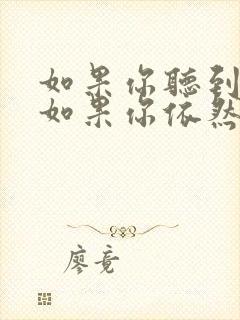 如果你聽到
如果你依然
廖竟